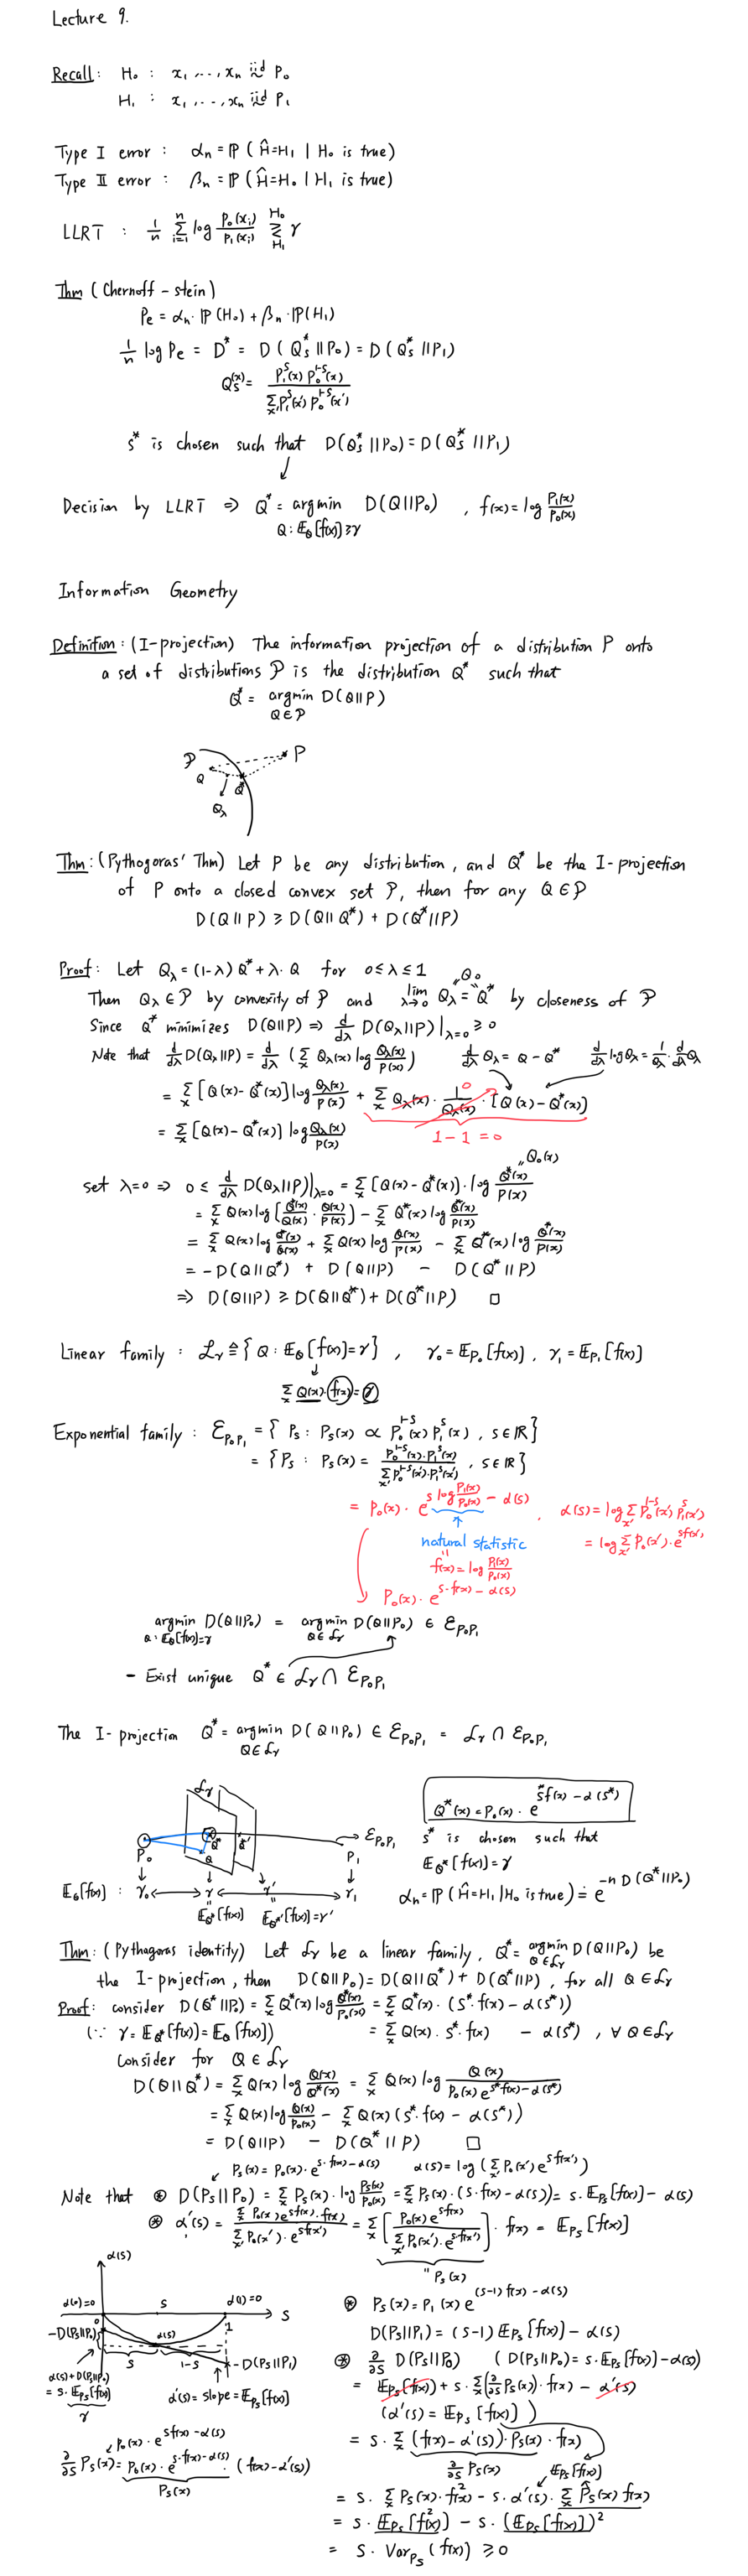 Lecture 9.
Recall: H₀ : x₁, ..., xₙ iid~ P₀
H₁ : x₁, ..., xₙ iid~ P₁
Type I error : αₙ = ℙ(Ĥ=H₁ | H₀ is true)
Type II error : βₙ = ℙ(Ĥ=H₀ | H₁ is true)
LLRT : 1/n Σᵢ₌₁ⁿ log P₀(xᵢ)/P₁(xᵢ) ≷ γ (H₀ / H₁)
Thm (Chernoff-stein)
Pe = αₙ·ℙ(H₀) + βₙ·ℙ(H₁)
1/n log Pe = D* = D(Qs*||P₀) = D(Qs*||P₁)
Qs(x) = P₁^s(x) P₀^{1-s}(x) / Σ_x' P₁^s(x') P₀^{1-s}(x')
s* is chosen such that D(Qs*||P₀) = D(Qs*||P₁)
↓
Decision by LLRT ⇒ Q* = argmin_{Q: 𝔼_Q[f(x)]≥γ} D(Q||P₀) , f(x) = log P₁(x)/P₀(x)
Information Geometry
Definition: (I-projection) The information projection of a distribution P onto
a set of distributions 𝒫 is the distribution Q* such that
Q* = argmin_{Q∈𝒫} D(Q||P)
𝒫 P
Q Q*
Q_λ
Thm: (Pythogoras' Thm) Let P be any distribution, and Q* be the I-projection
of P onto a closed convex set 𝒫, then for any Q ∈ 𝒫
D(Q||P) ≥ D(Q||Q*) + D(Q*||P)
Proof: Let Q_λ = (1-λ)Q* + λ·Q for 0≤λ≤1 "Q₀
Then Q_λ ∈ 𝒫 by convexity of 𝒫 and lim_{λ→0} Q_λ = Q* by closeness of 𝒫
Since Q* minimizes D(Q||P) ⇒ d/dλ D(Q_λ||P)|_{λ=0} ≥ 0
Note that d/dλ D(Q_λ||P) = d/dλ (Σ_x Q_λ(x) log Q_λ(x)/P(x)) d/dλ Q_λ = Q - Q* d/dλ log Q_λ = 1/Q_λ · d/dλ Q_λ
= Σ_x [Q(x) - Q*(x)] log Q_λ(x)/P(x) + Σ_x Q_λ(x) · 1/Q_λ(x) · [Q(x) - Q*(x)] 0
= Σ_x [Q(x) - Q*(x)] log Q_λ(x)/P(x) 1 - 1 = 0
set λ=0 ⇒ 0 ≤ d/dλ D(Q_λ||P)|_{λ=0} = Σ_x [Q(x) - Q*(x)] · log Q*(x)/P(x) "Q₀(x)
= Σ_x Q(x) log [Q*(x)/Q(x) · Q(x)/P(x)] - Σ_x Q*(x) log Q*(x)/P(x)
= Σ_x Q(x) log Q*(x)/Q(x) + Σ_x Q(x) log Q(x)/P(x) - Σ_x Q*(x) log Q*(x)/P(x)
= -D(Q||Q*) + D(Q||P) - D(Q*||P)
⇒ D(Q||P) ≥ D(Q||Q*) + D(Q*||P) □
Linear family : ℒγ ≜ {Q : 𝔼_Q[f(x)] = γ} , γ₀ = 𝔼_P₀[f(x)] , γ₁ = 𝔼_P₁[f(x)]
↓
Σ_x Q(x)·f(x) = γ
Exponential family : ℰ_P₀P₁ = {Ps : Ps(x) ∝ P₀^{1-s}(x) P₁^s(x) , s∈ℝ}
= {Ps : Ps(x) = P₀^{1-s}(x)·P₁^s(x) / Σ_x' P₀^{1-s}(x')·P₁^s(x') , s∈ℝ}
= P₀(x)·e^{s log P₁(x)/P₀(x) - α(s)} , α(s) = log Σ_x' P₀^{1-s}(x') P₁^s(x')
natural statistic = log Σ_x' P₀(x')·e^{sf(x')}
" f(x) = log P₁(x)/P₀(x)
P₀(x)·e^{s·f(x) - α(s)}
argmin_{Q:𝔼_Q[f(x)]=γ} D(Q||P₀) = argmin_{Q∈ℒγ} D(Q||P₀) ∈ ℰ_P₀P₁
- Exist unique Q* ∈ ℒγ ∩ ℰ_P₀P₁
The I-projection Q* = argmin_{Q∈ℒγ} D(Q||P₀) ∈ ℰ_P₀P₁ = ℒγ ∩ ℰ_P₀P₁
ℒγ
Q*(x) = P₀(x)·e^{s*f(x) - α(s*)}
P₀ Q* Q*' Q P₁ → ℰ_P₀P₁
s* is chosen such that
𝔼_Q*[f(x)] = γ
𝔼_Q[f(x)] : γ₀ ↔ γ ↔ γ' → γ₁
𝔼_Q*[f(x)] 𝔼_Q*'[f(x)] = γ'
αₙ = ℙ(Ĥ=H₁|H₀ is true) ≐ e^{-n D(Q*||P₀)}
Thm: (Pythagoras identity) Let ℒγ be a linear family, Q* = argmin_{Q∈ℒγ} D(Q||P₀) be
the I-projection, then D(Q||P₀) = D(Q||Q*) + D(Q*||P), for all Q∈ℒγ
Proof: consider D(Q*||P₀) = Σ_x Q*(x) log Q*(x)/P₀(x) = Σ_x Q*(x)·(s*·f(x) - α(s*))
(∵ γ = 𝔼_Q*[f(x)] = 𝔼_Q[f(x)]) = Σ_x Q(x)·s*·f(x) - α(s*) , ∀ Q∈ℒγ
Consider for Q∈ℒγ
D(Q||Q*) = Σ_x Q(x) log Q(x)/Q*(x) = Σ_x Q(x) log Q(x)/(P₀(x) e^{s*f(x) - α(s*)})
= Σ_x Q(x) log Q(x)/P₀(x) - Σ_x Q(x)(s*·f(x) - α(s*))
= D(Q||P) - D(Q*||P) □
Ps(x) = P₀(x)·e^{s·f(x) - α(s)} α(s) = log(Σ_x' P₀(x') e^{sf(x')})
Note that ⊛ D(Ps||P₀) = Σ_x Ps(x)·log Ps(x)/P₀(x) = Σ_x Ps(x)·(s·f(x) - α(s)) = s·𝔼_Ps[f(x)] - α(s)
⊛ α'(s) = Σ_x P₀(x) e^{sf(x)}·f(x) / Σ_x' P₀(x')·e^{sf(x')} = Σ_x [P₀(x) e^{sf(x)} / Σ_x' P₀(x')·e^{sf(x')}]·f(x) = 𝔼_Ps[f(x)]
" Ps(x)
α(s)
α(0)=0 s α(1)=0 S
0 1
-D(Ps||P₀) α(s)
s 1-s -D(Ps||P₁)
α(s) + D(Ps||P₀)
= s·𝔼_Ps[f(x)]
γ
α'(s) = slope = 𝔼_Ps[f(x)]
P₀(x)·e^{sf(x) - α(s)}
∂/∂s Ps(x) = P₀(x)·e^{s·f(x) - α(s)}·(f(x) - α'(s))
Ps(x)
⊛ Ps(x) = P₁(x) e^{(s-1)f(x) - α(s)}
D(Ps||P₁) = (s-1)𝔼_Ps[f(x)] - α(s)
⊛ ∂/∂s D(Ps||P₀) (D(Ps||P₀) = s·𝔼_Ps[f(x)] - α(s))
= 𝔼_Ps[f(x)] + s·Σ_x(∂/∂s Ps(x))·f(x) - α'(s)
(α'(s) = 𝔼_Ps[f(x)])
= s·Σ_x (f(x) - α'(s))·Ps(x)·f(x)
∂/∂s Ps(x) 𝔼_Ps[f(x)]
= s·Σ_x Ps(x)·f²(x) - s·α'(s)·Σ_x Ps(x) f(x)
= s·𝔼_Ps[f²(x)] - s·(𝔼_Ps[f(x)])²
= s·Var_Ps(f(x)) ≥ 0